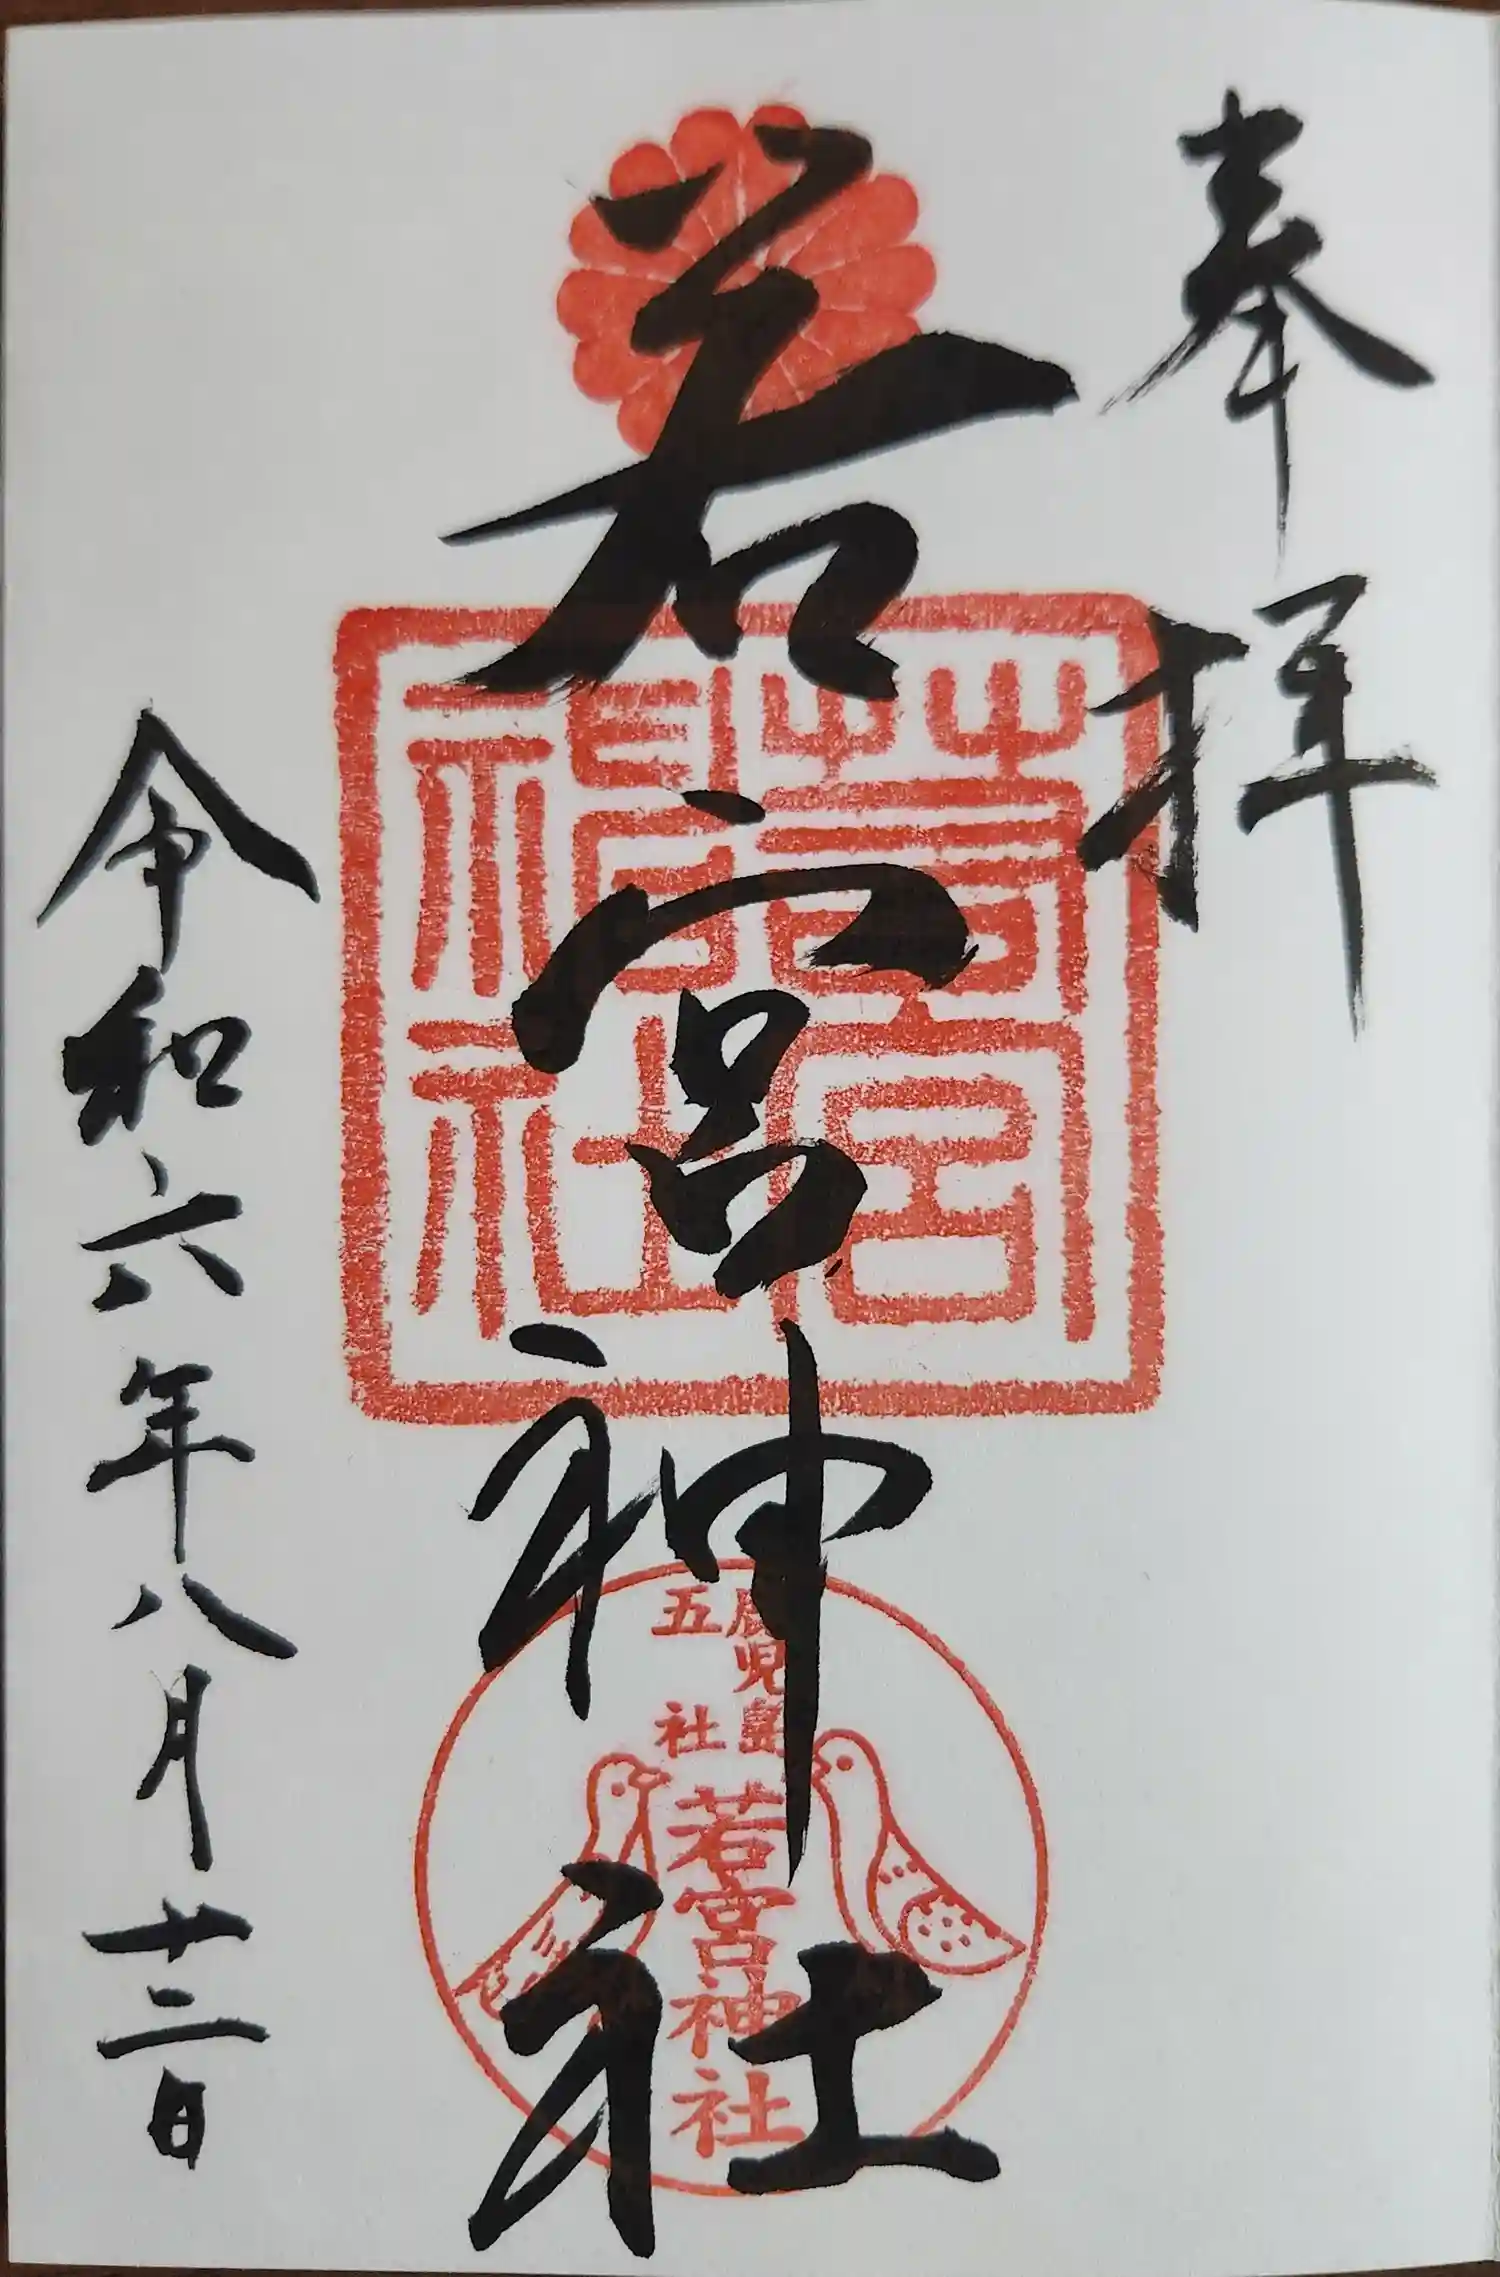 奉拝
若宮神社
若宮
神社
鹿児島
五社
若宮神社
令和六年八月廿二日